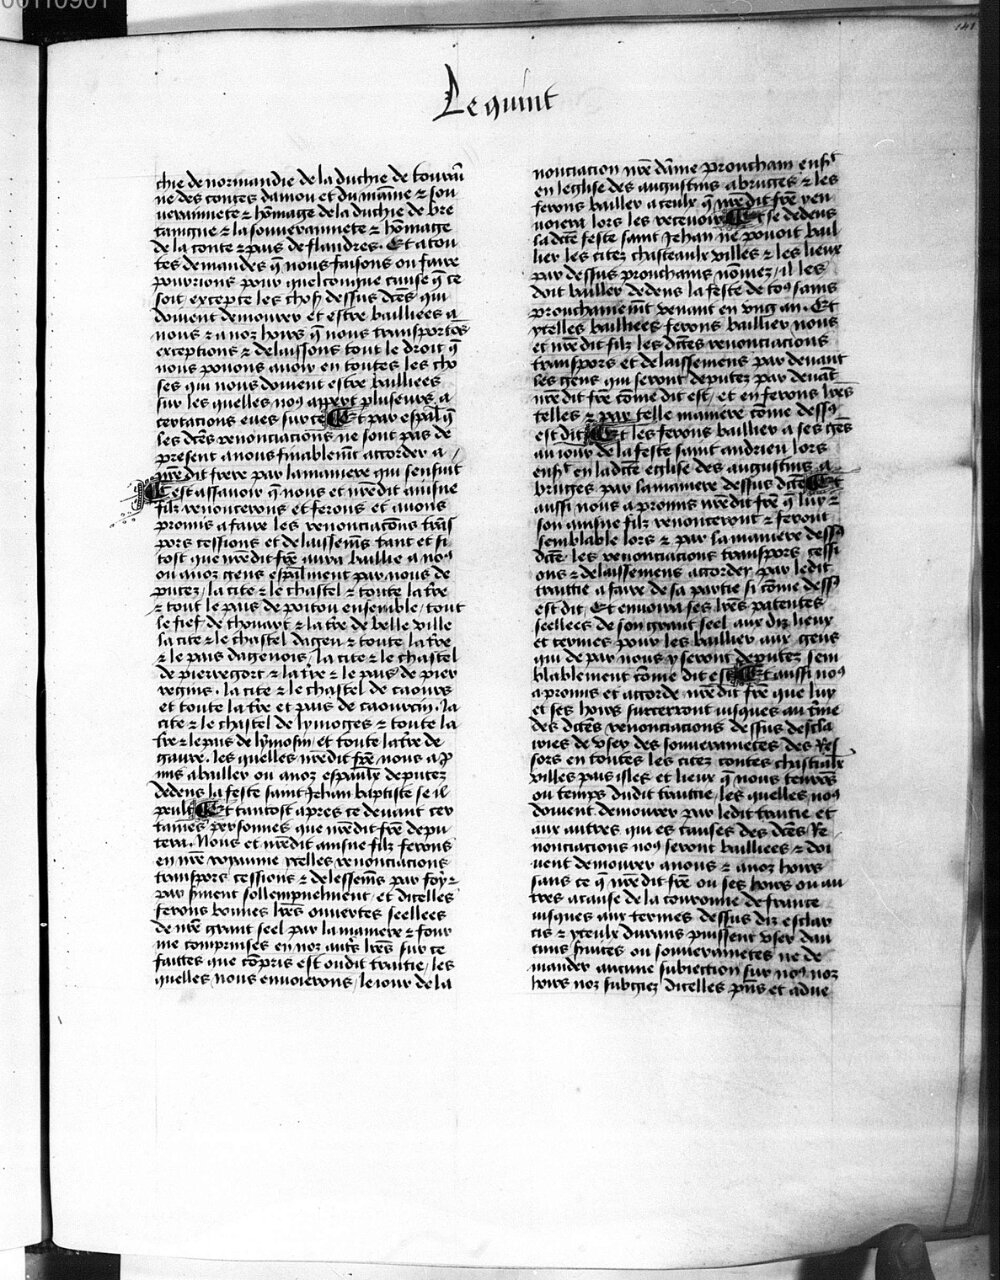 00110901
141
Le quint
chie de normandie de la duchie de tourai
ne des contes daniou et du maine ⁊ sou
uerainnete ⁊ hōmage de la duchie de bre
taingne ⁊ la souuerainnete ⁊ hōmage
de la conte ⁊ pais de flandres. Et a tou
tes demandes q̄ nous faisons ou faire
pourrions pour quelconque cause q̄ ce
soit, excepte les choſ dessus dc̄es qui
doiuent demourer et estre bailliees a
nous ⁊ a noz hoirs q̄ nous transportōs
exceptions ⁊ delaissons tout le droit q̄
nous pouons auoir en toutes les cho
ses qui nous doiuent estre bailliees
sur les quelles noꝯ appert pluseurs a
certacions eues sur ce Et par espāl q̄
les dc̄es renonciacions ne sont pas de
present a nous finablemt̄ accorder a
nr̄edit frere par la maniere qui sensuit
Cest assauoir q̄ nous et nr̄edit ainsne
filz renoncerons et ferons et auons
promis a faire les renonciacōns trās
pors cessions et delaissemēs tant et si
tost que nr̄edit fr̄e aura baillie a noꝯ
ou a noz gens esp̄alment par nous de
putez, la cite ⁊ le chastel ⁊ toute la tr̄e
⁊ tout le pais de poitou ensemble, tout
le fief de thouart ⁊ la tr̄e de belle ville
la cite ⁊ le chastel dagen ⁊ toute la tr̄e
⁊ le pais dagenois, la cite ⁊ le chastel
de pierregort ⁊ la tr̄e ⁊ le pais de pier
regins. la cite ⁊ le chastel de caours
et toute la tr̄e et pais de caourcin. la
cite ⁊ le chastel de lymoges ⁊ toute la
tr̄e ⁊ le pais de lymosin, et toute la tr̄e de
gaure. les quelles nr̄edit fr̄e nous a ꝓ
mis a bailler ou a noz esp̄aulx deputez
dedens la feste saint Jehan baptiste se il
peult Et tantost apres ce deuant cer
taines personnes que nr̄edit fr̄e depu
tera. Nous et nr̄edit ainsne filz ferons
en nr̄e royaume ycelles renonciacions
transpors cessions ⁊ delessemēs par foy ⁊
par s̄ment sollempnelment, et dicelles
ferons bonnes lr̄es ouuertes seellees
de nr̄e grant seel par la maniere ⁊ four
me comprinses en noz autr̄s lr̄es sur ce
faittes que cōpris est oudit traitie, les
quelles nous enuoierons, le iour de la
nonciacion nr̄e dāme prouchain ensꝰ
en leglise des augustins a bruges ⁊ les
ferons bailler a ceulx q̄ nr̄edit fr̄e ren
uoiera lors les receuoir Et se dedens
ladc̄e feste saint Jehan ne pouoit bail
lier les citez chasteaulx villes ⁊ les lieux
par dessus prouchains nōmez, il les
doit bailler dedens la feste de toꝯ sains
prouchainemt̄ venant en vng an. Et
ycelles bailliees ferons baillier nous
et nr̄edit filz les dc̄es renonciacions
transpors et delaissemens par deuant
les gens qui seront deputez par deuāt
nr̄edit fr̄e cōme dit est, et en ferons lr̄es
telles ⁊ par telle maniere cōme dessꝰ
est dit Et les ferons baillier a ses gēs
au iour de la feste saint andrieu lors
ensꝰ en ladc̄e eglise des augustins a
bruges par la maniere dessus dc̄e Et
aussi nous a promis nr̄edit fr̄e q̄ luy ⁊
son ainsne filz renonceront ⁊ feront
semblable lors ⁊ par la maniere dessꝰ
dc̄e les renonciacions transpors cessi
ons ⁊ delaissemens accorder par ledit
traitie a faire de sa partie si cōme dessꝰ
est dit. Et enuoira ses lr̄es patentes
seellees de son grant seel aux diz lieux
et termes pour les baillier aux gens
qui de par nous y seront deputez sem
blablement cōme dit est Et aussi noꝯ
a promis et accorde nr̄edit fr̄e que luy
et ses hoirs surcerront iusques au t̄me
des dc̄es renonciacions dessus descla
iries de vser des souuerainetes des Res
sors en toutes les citez contes chasteaulx
villes pais isles et lieux q̄ nous tenions
ou temps dudit traitie, les quelles noꝯ
doiuent demourer par ledit traitie et
aux autres qui es causes des dc̄es Re
nonciacions noꝯ seront bailliees ⁊ doi
uent demourer a nous ⁊ a noz hoirs
sans ce q̄ nr̄edit fr̄e ou ses hoirs ou au
tres a cause de la couronne de france
iusques aux termes dessus diz esclar
cis ⁊ yceulx durans puissent vser dau
cuns seruices ou souuerainetes ne de
mander aucune subiection sur noꝯ noz
hoirs noz subgiez dicelles p̄ns et adue